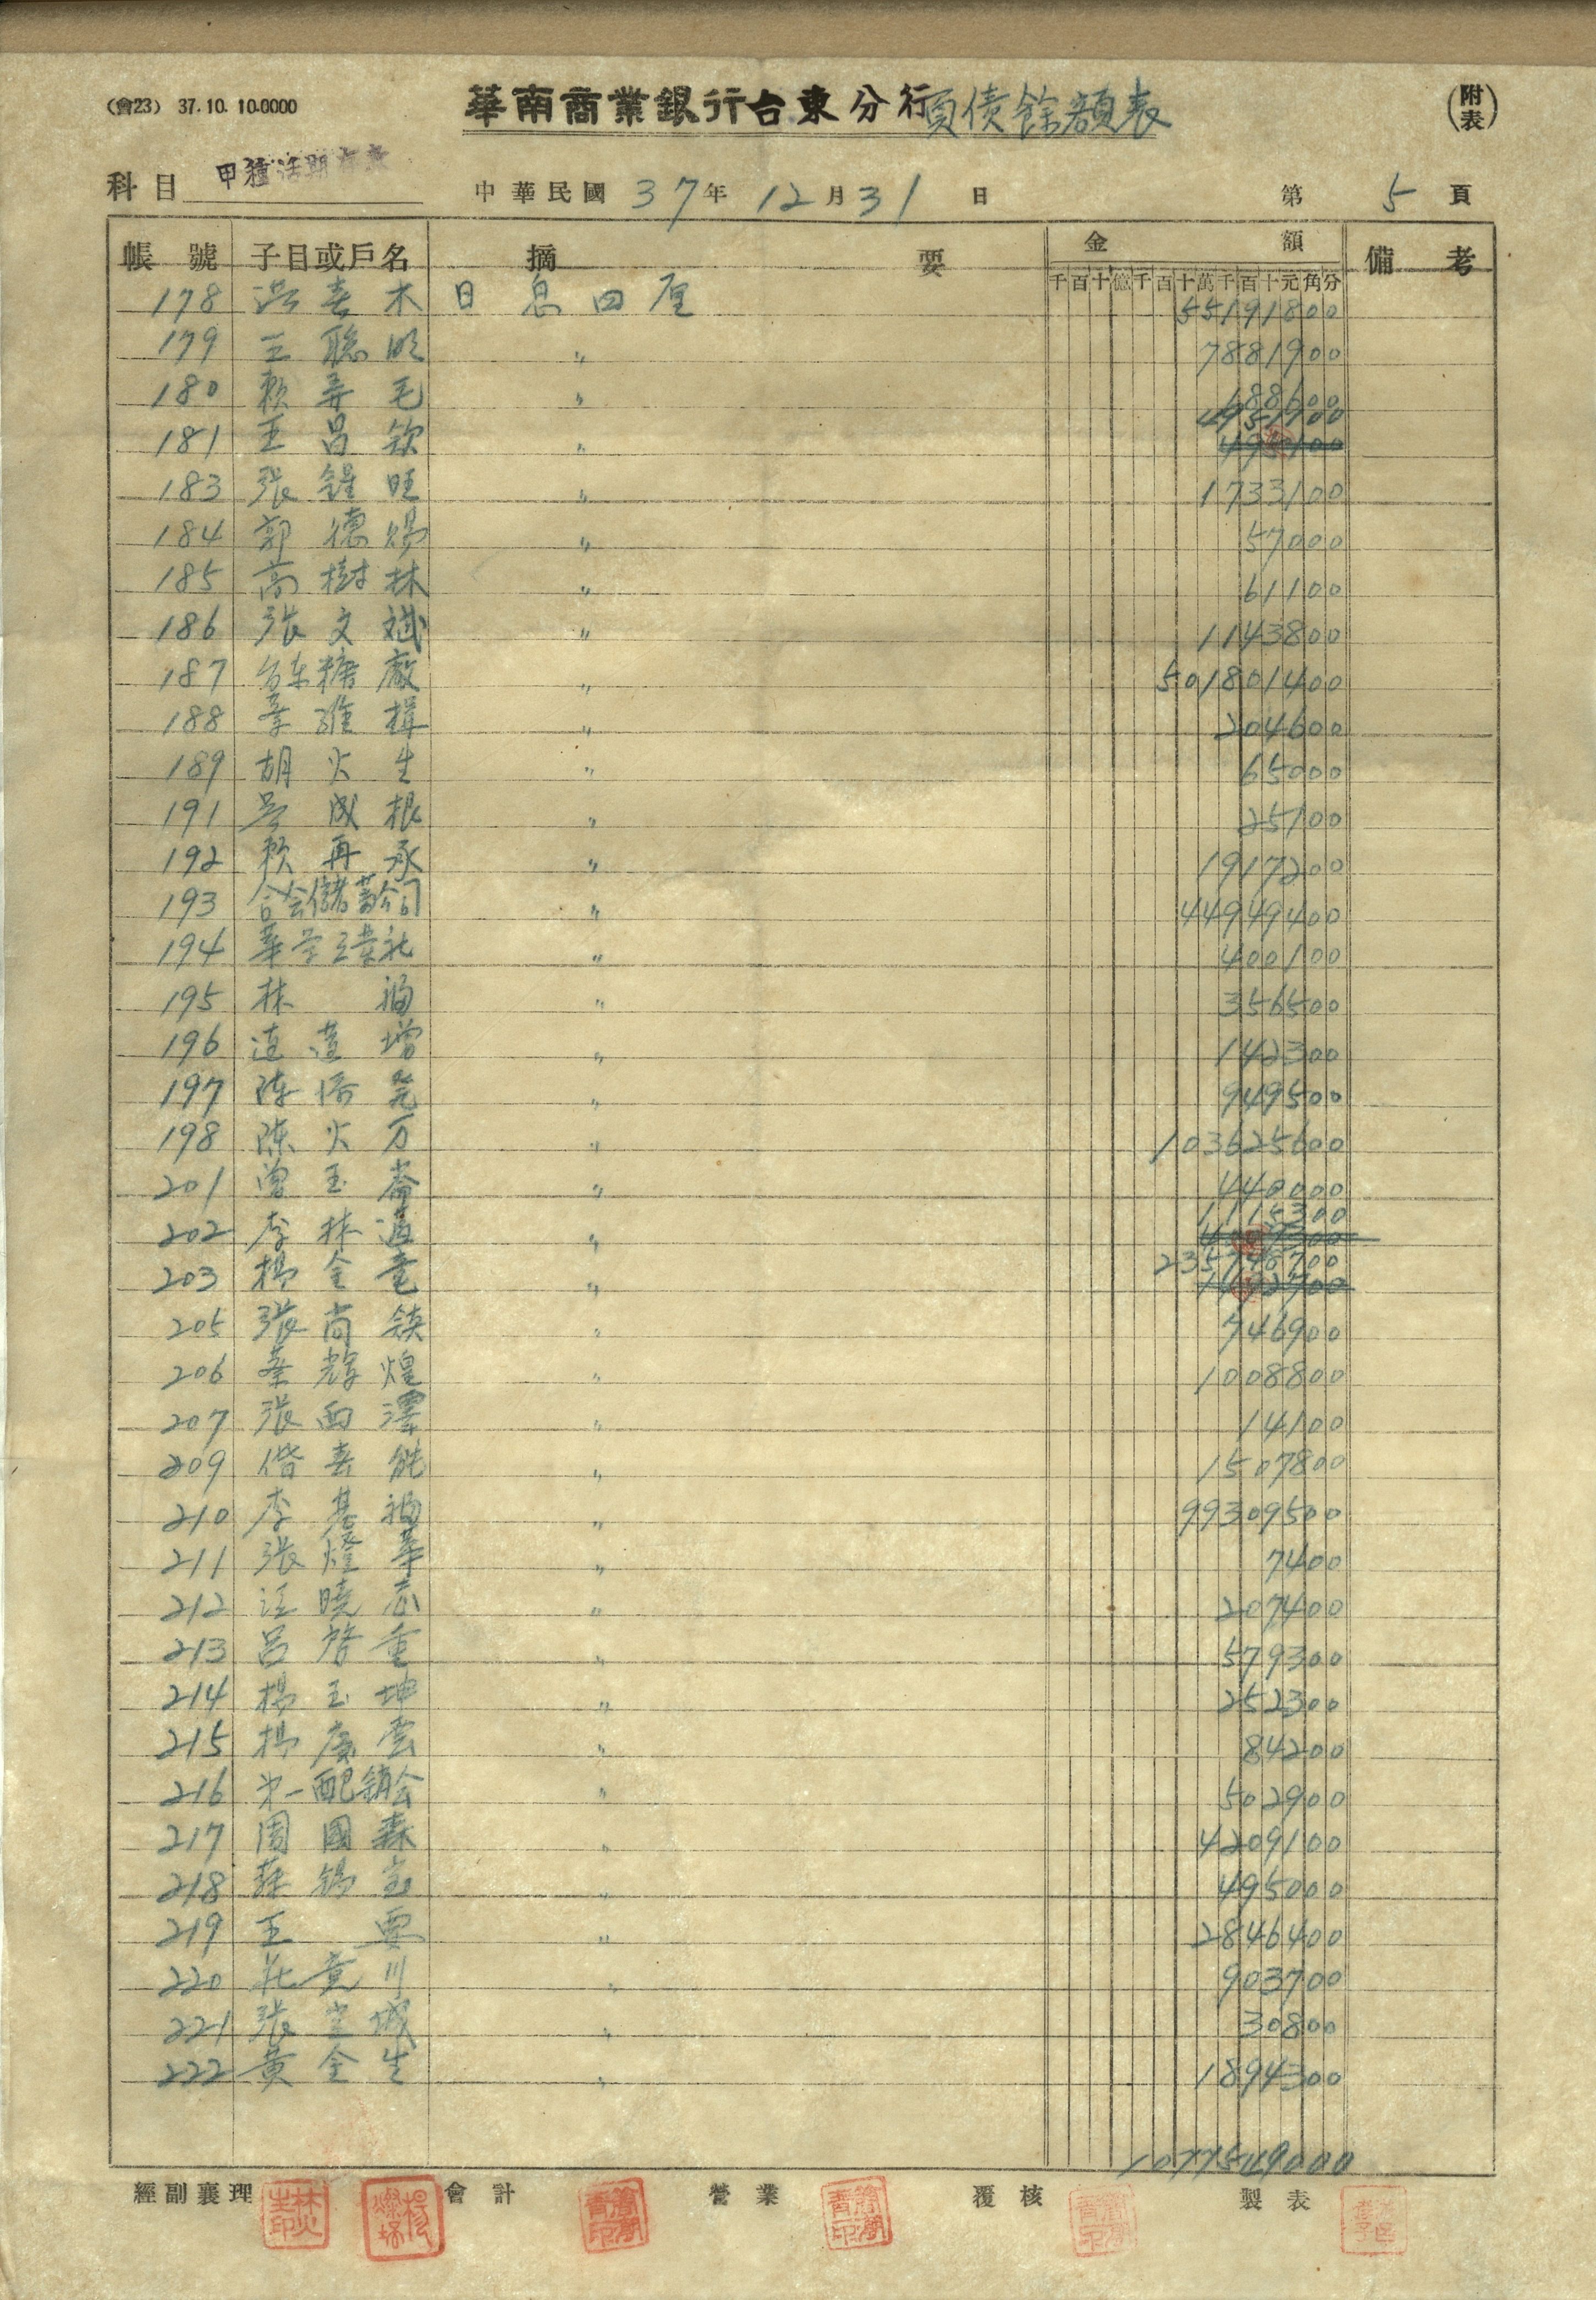 (會23) 37.10.10.0000
華南商業銀行台東分行負債餘額表
(附表)
科目 甲種活期存款 中華民國 37年 12月31日 第 5 頁
帳號 子目或戶名 摘要 金額 備考
千百十億千百十萬千百十元角分
178 洪春木 日息四厘 55191800
179 王聰明 〃 7881900
180 賴弄毛 〃 188600
4951900
181 王昌欽 〃 495100
183 張鐘旺 〃 1733100
184 郭德賜 〃 57000
185 高樹林 〃 61100
186 張文斌 〃 1143800
187 台东糖廠 〃 501801400
188 辜維楫 〃 204600
189 胡火生 〃 65000
191 吳成根 〃 25100
192 賴再承 〃 1917200
193 合会儲蓄公司 〃 44949400
194 華学工業社 〃 400100
195 林福 〃 356500
196 連蓮增 〃 142300
197 陈添尧 〃 949500
198 陈火万 〃 103625600
201 曾玉崙 〃 440000
1115300
202 李林道 〃
235748700
203 楊金竜 〃
205 張尚鎮 〃 746900
206 葉輝煌 〃 1008800
207 張西澤 〃 14100
209 偕春能 〃 1507800
210 李基福 〃 99309500
211 張燈華 〃 7400
212 汪曉志 〃 207400
213 呂啓重 〃 579300
214 楊玉坤 〃 252300
215 楊广雲 〃 84200
216 才一配銷会 〃 502900
217 周國森 〃 4209100
218 蘇錫宝 〃 495000
219 王要 〃 2846400
220 莊竟川 〃 903700
221 張金城 〃 30800
222 黃全生 〃 1894300
1077549000
經副襄理 會計 營業 覆核 製表